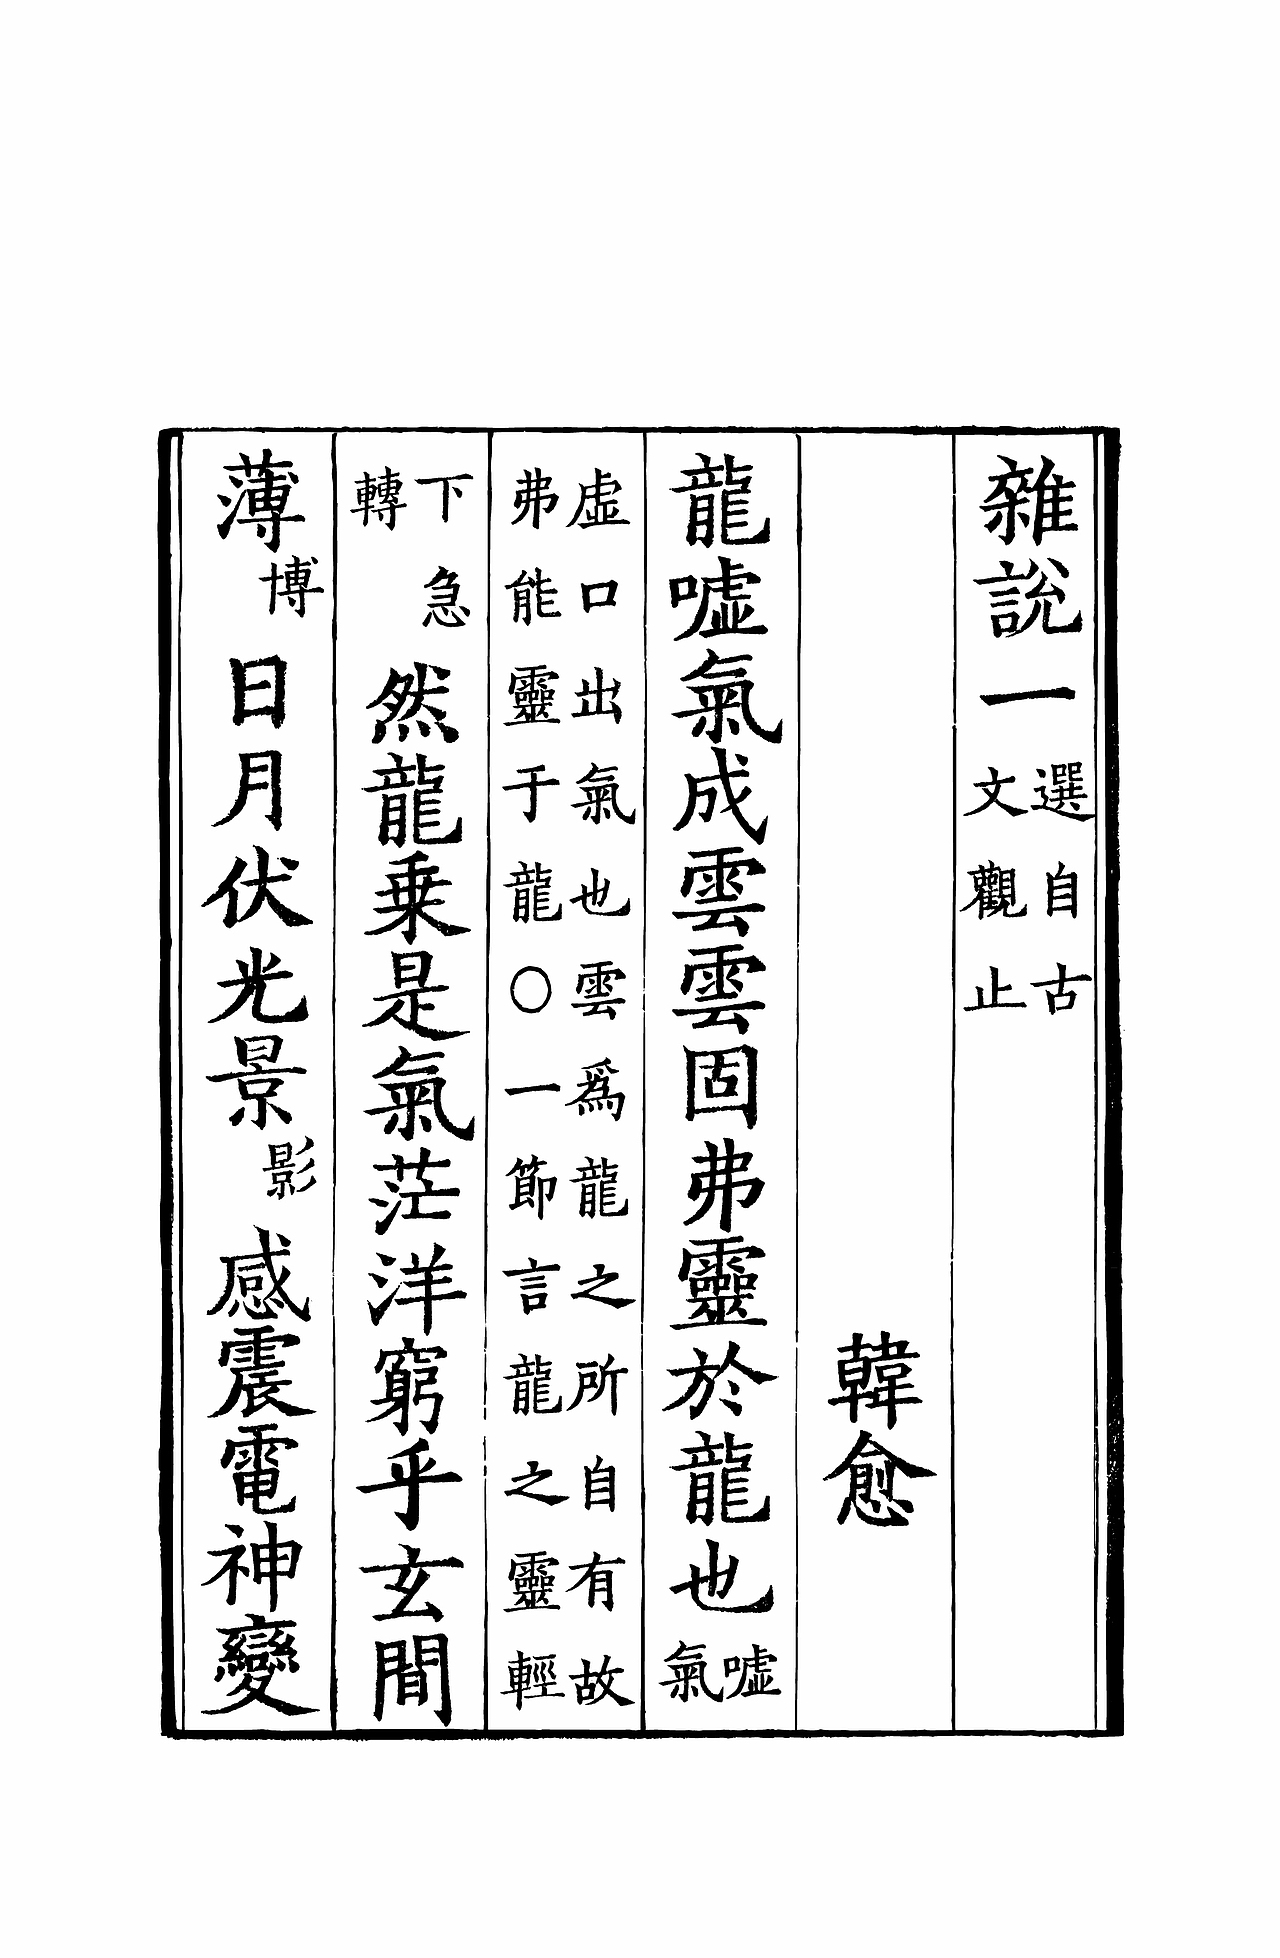 雜說一選自古文觀止
韓愈
龍噓氣成雲雲固弗靈於龍也噓氣
虛口出氣也雲爲龍之所自有故
弗能靈于龍○一節言龍之靈輕
下急轉然龍乗是氣茫洋窮乎玄間
薄博日月伏光景影感震電神變